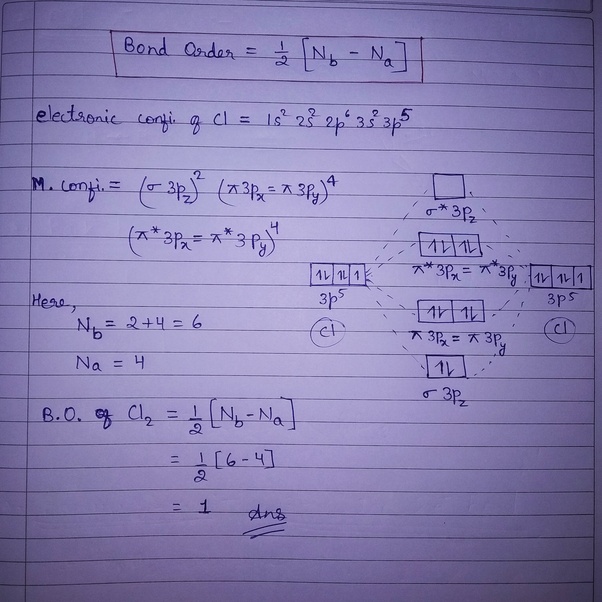 Bond Order = 1/2 [N_b - N_a]
electronic confi. of Cl = 1s² 2s² 2p⁶ 3s² 3p⁵
M. confi. = (σ 3p_z)² (π3p_x = π3p_y)⁴
(π*3p_x = π*3p_y)⁴
σ*3p_z
π*3p_x = π*3p_y
1↓ 1↓ 1
3p⁵
Cl
1↓ 1↓ 1
3p⁵
Cl
π3p_x = π3p_y
σ 3p_z
Here,
N_b = 2+4 = 6
Na = 4
B.O. of Cl₂ = 1/2 [N_b - N_a]
= 1/2 [6-4]
= 1 Ans